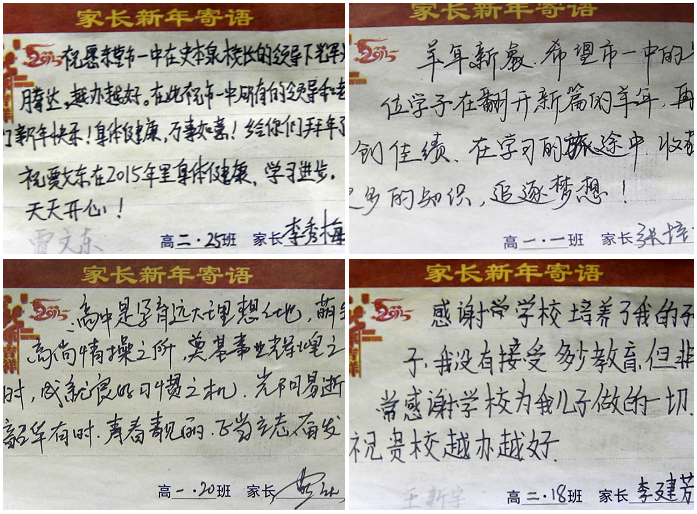 家长新年寄语
2015
祝愿东营市一中在史本泉校长的领导下光辉
腾达,越办越好。在此祝市一中所有的领导和老
们新年快乐!身体健康,万事如意!给你们拜年了
祝贾文东在2015年里身体健康、学习进步。
天天开心!
贾文东
高二·25班 家长 李秀梅
家长新年寄语
2015
羊年新气象、希望市一中的
位学子在翻开新篇的羊年,再
创佳绩、在学习的旅途中,收获
更多的知识,追逐梦想!
高一·一班 家长 张培
家长新年寄语
2015
高中是孕育远大理想之地,萌生
高尚情操之所,奠基事业辉煌之
时,成就良好习惯之机。光阴易逝
韶华有时.青春靓丽.正当立志奋发
高一·20班 家长
家长新年寄语
2015
感谢 学校培养了我的
子,我没有接受多少教育,但非
常感谢学校为我儿子做的一切
祝贵校越办越好.
王新宇
高二·18班 家长 李建芳